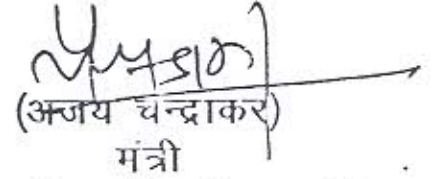 (अजय चन्द्राकर)
मंत्री